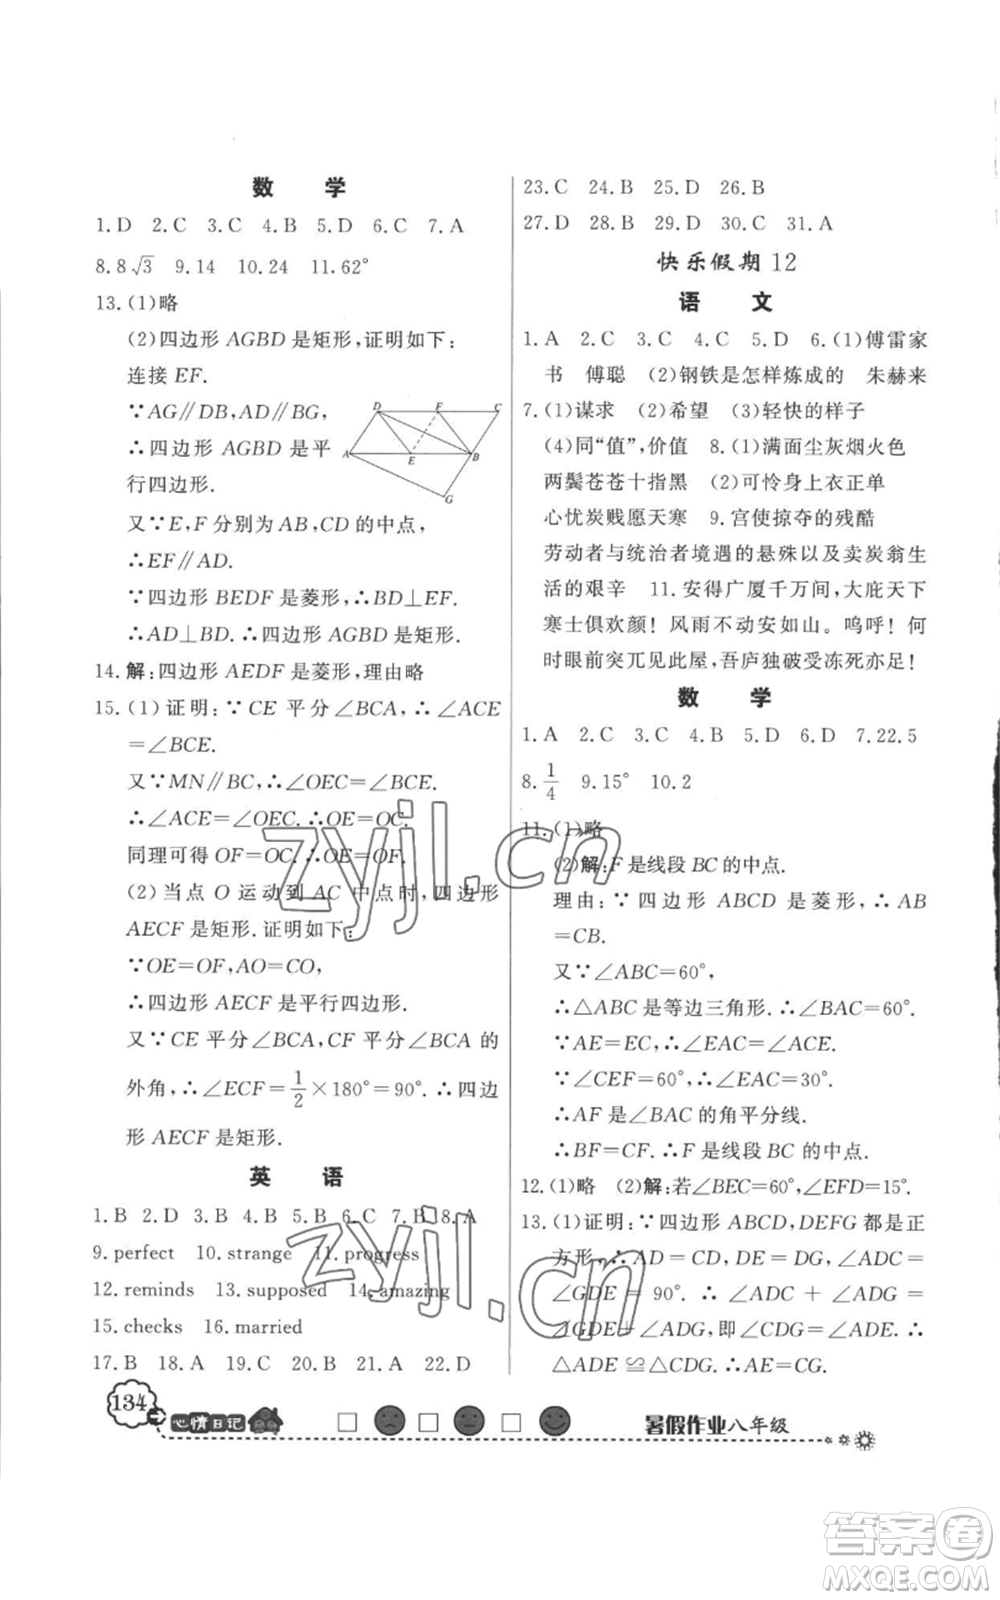 数 学
1.D 2.C 3.C 4.B 5.D 6.C 7.A
8.8√3 9.14 10.24 11.62°
13.(1)略
(2)四边形 AGBD 是矩形,证明如下:
连接 EF.
∵AG∥DB,AD∥BG,
∴四边形 AGBD 是平
行四边形.
D F C
A E B
G
又∵E,F 分别为 AB,CD 的中点,
∴EF∥AD.
∵四边形 BEDF 是菱形,∴BD⊥EF.
∴AD⊥BD.∴四边形 AGBD 是矩形.
14.解:四边形 AEDF 是菱形,理由略
15.(1)证明:∵CE 平分∠BCA,∴∠ACE
=∠BCE.
又∵MN∥BC,∴∠OEC=∠BCE.
∴∠ACE=∠OEC.∴OE=OC.
同理可得 OF=OC.∴OE=OF.
(2)当点 O 运动到 AC 中点时,四边形
AECF 是矩形.证明如下:
∵OE=OF,AO=CO,
∴四边形 AECF 是平行四边形.
又∵CE 平分∠BCA,CF 平分∠BCA 的
外角,∴∠ECF=1/2×180°=90°.∴四边
形 AECF 是矩形.
英 语
1.B 2.D 3.B 4.B 5.B 6.C 7.B 8.A
9.perfect 10.strange 11.progress
12.reminds 13.supposed 14.amazing
15.checks 16.married
17.B 18.A 19.C 20.B 21.A 22.D
23.C 24.B 25.D 26.B
27.D 28.B 29.D 30.C 31.A
快乐假期 12
语 文
1.A 2.C 3.C 4.C 5.D 6.(1)傅雷家
书 傅聪 (2)钢铁是怎样炼成的 朱赫来
7.(1)谋求 (2)希望 (3)轻快的样子
(4)同“值”,价值 8.(1)满面尘灰烟火色
两鬓苍苍十指黑 (2)可怜身上衣正单
心忧炭贱愿天寒 9.宫使掠夺的残酷
劳动者与统治者境遇的悬殊以及卖炭翁生
活的艰辛 11.安得广厦千万间,大庇天下
寒士俱欢颜!风雨不动安如山。呜呼!何
时眼前突兀见此屋,吾庐独破受冻死亦足!
数 学
1.A 2.C 3.C 4.B 5.D 6.D 7.22.5
8.1/4 9.15° 10.2
11.(1)略
(2)解:F 是线段 BC 的中点.
理由:∵四边形 ABCD 是菱形,∴AB
=CB.
又∵∠ABC=60°,
∴△ABC 是等边三角形.∴∠BAC=60°.
∵AE=EC,∴∠EAC=∠ACE.
∵∠CEF=60°,∴∠EAC=30°.
∴AF 是∠BAC 的角平分线.
∴BF=CF.∴F 是线段 BC 的中点.
12.(1)略 (2)解:若∠BEC=60°,∠EFD=15°.
13.(1)证明:∵四边形 ABCD,DEFG 都是正
方形,∴AD=CD,DE=DG,∠ADC=
∠GDE=90°.∴∠ADC+∠ADG=
∠GDE+∠ADG,即∠CDG=∠ADE.∴
△ADE≌△CDG.∴AE=CG.
134
心情日记
暑假作业八年级
zyjl.cn
zyjl.cn
答案卷
MXQE.COM